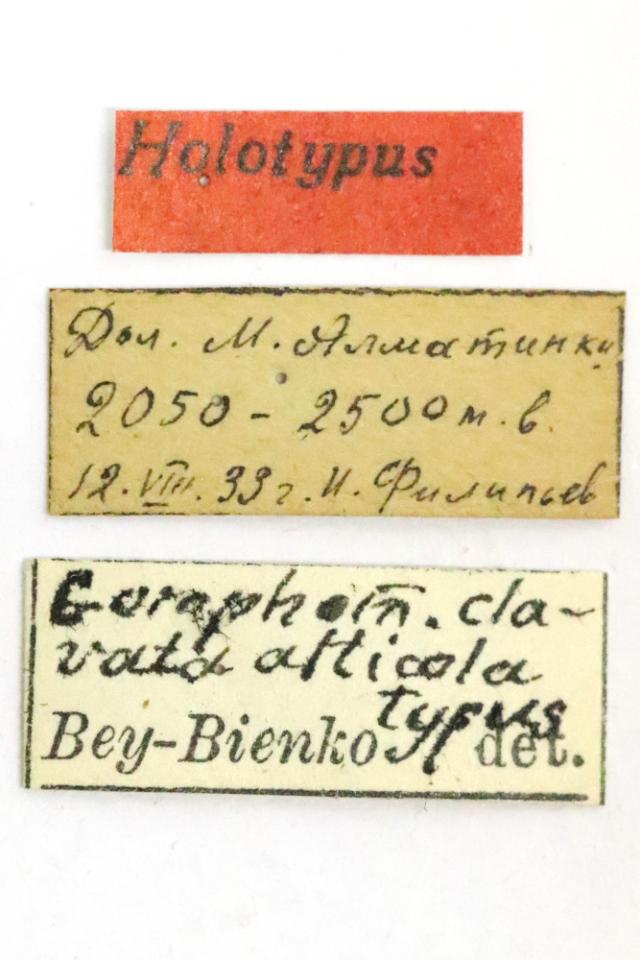 Holotypus
Дол. М. Алматинки
2050 - 2500 м. в.
12. VIII. 33 г. И. Филипьев
cla-
vata alticola
typus
Bey-Bienko det.